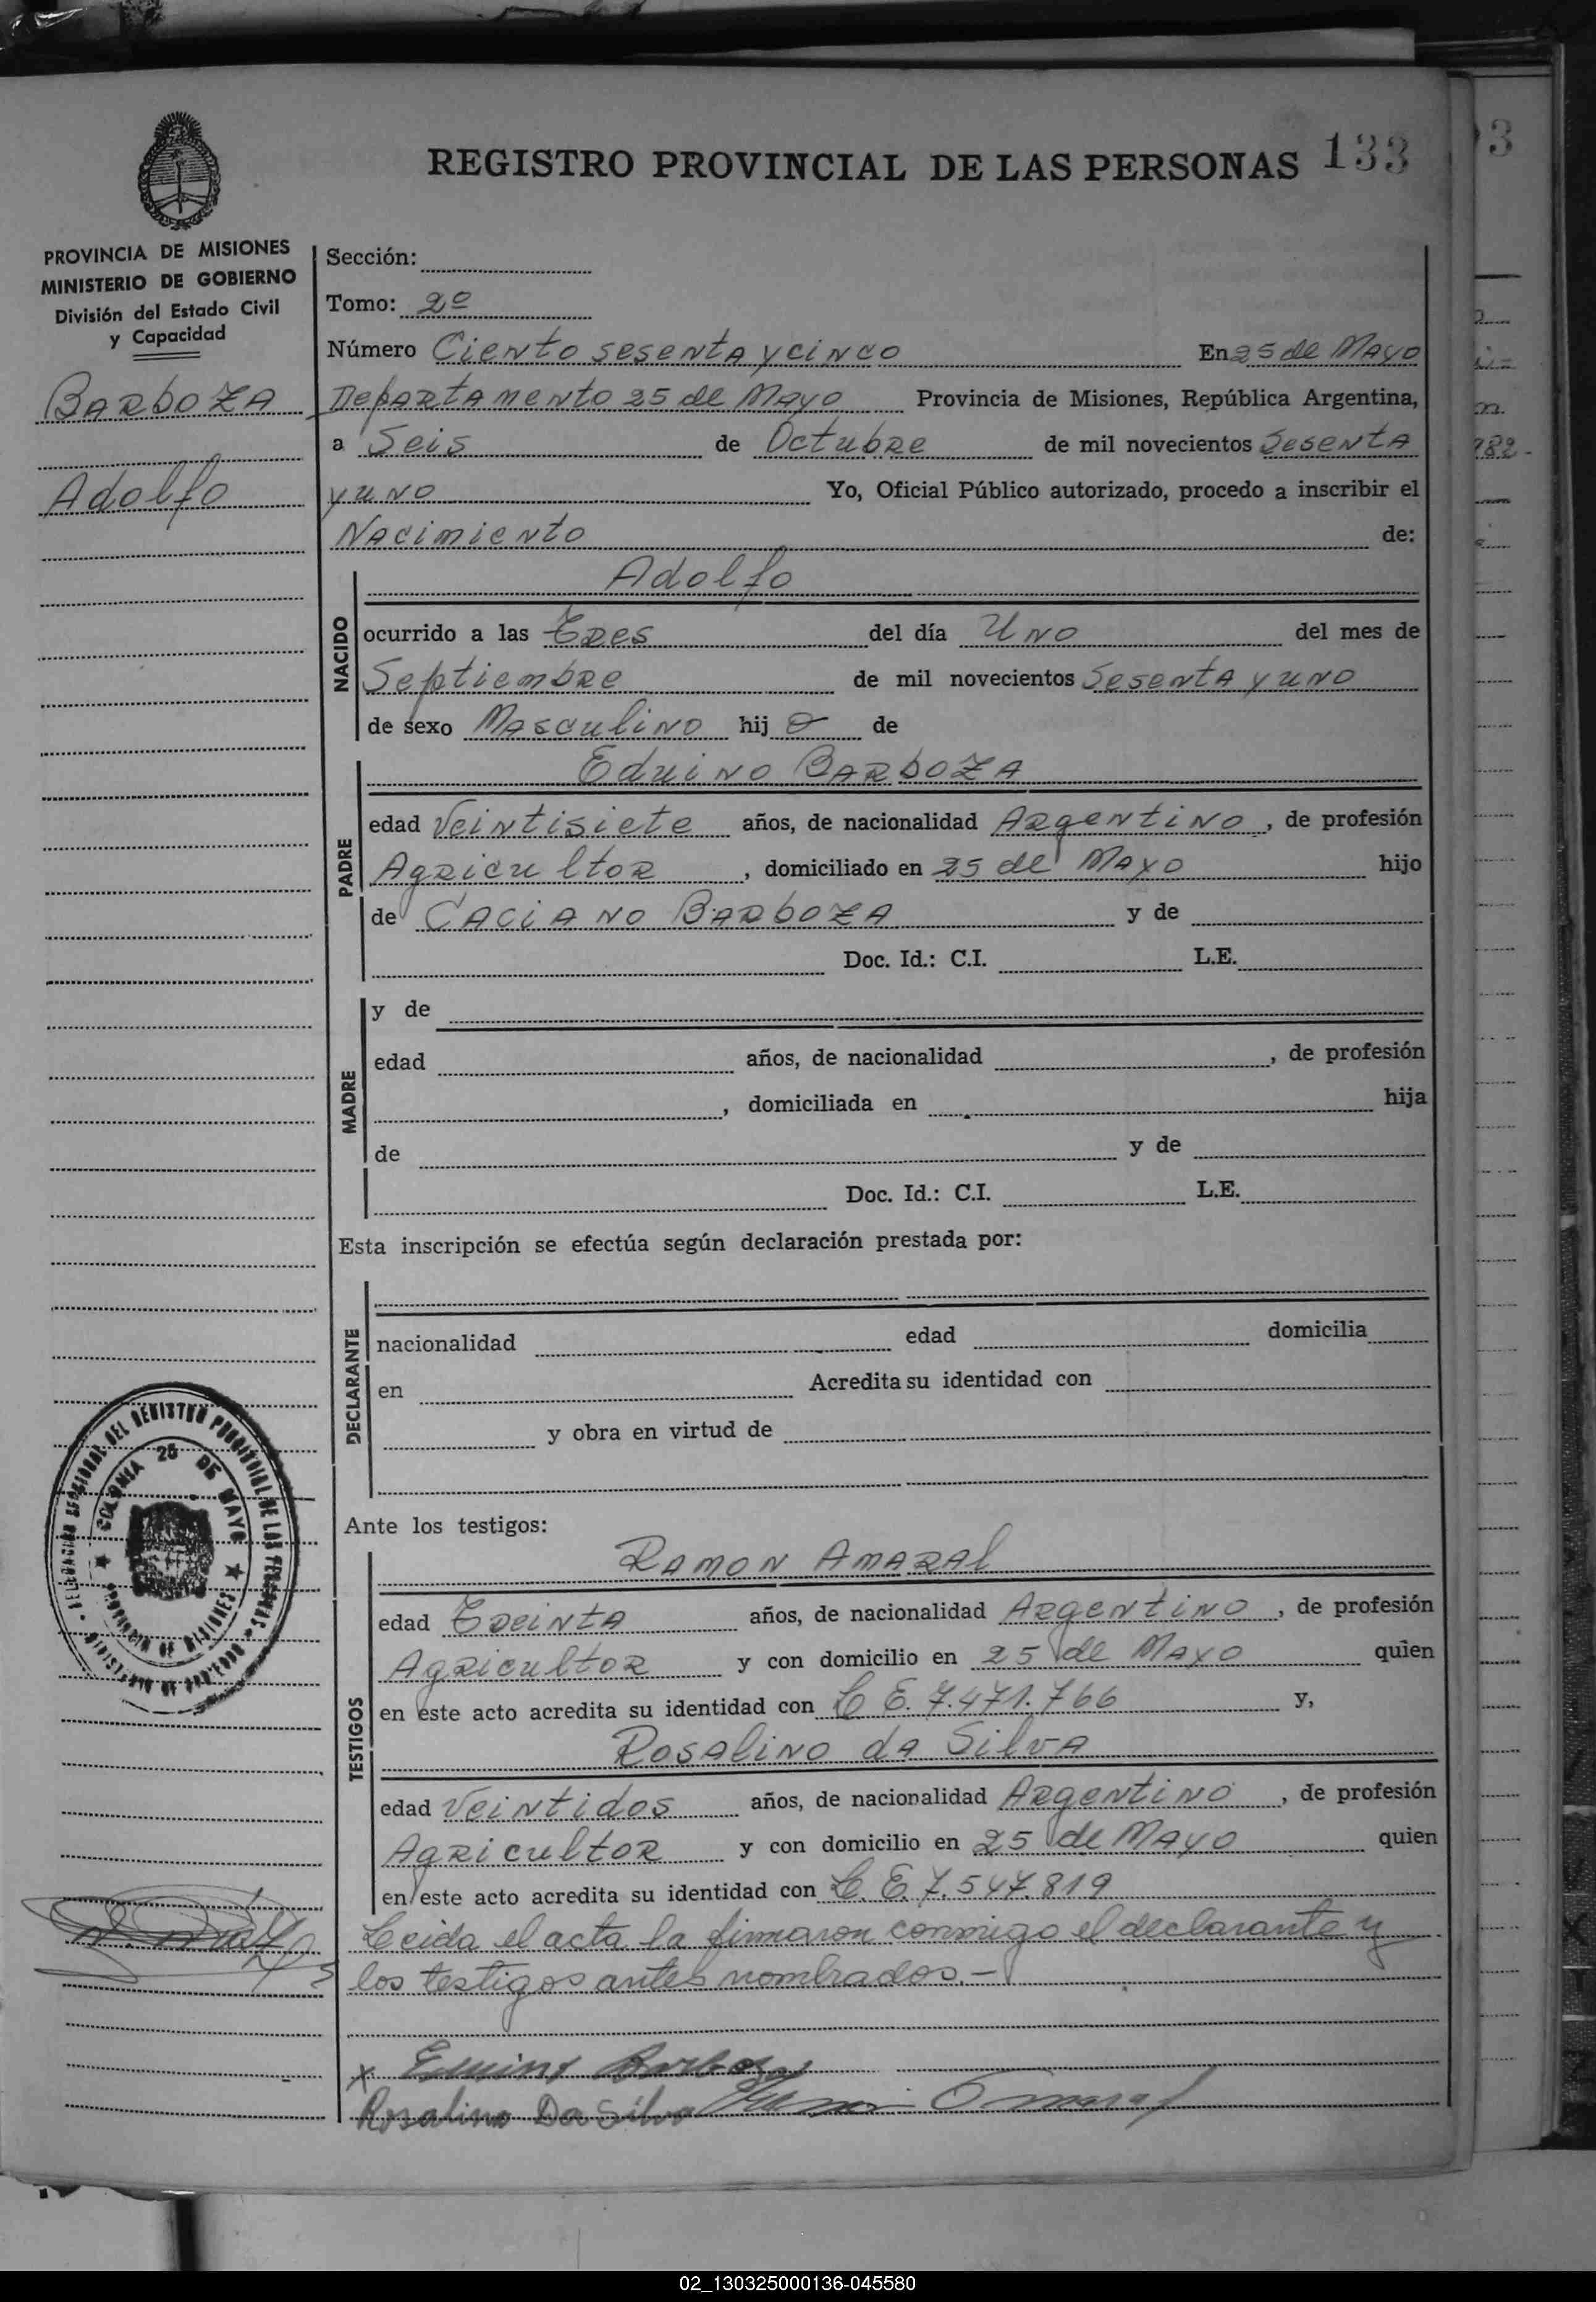 REGISTRO PROVINCIAL DE LAS PERSONAS 133
PROVINCIA DE MISIONES
MINISTERIO DE GOBIERNO
División del Estado Civil
y Capacidad
BARBOZA
Adolfo
Sección:
Tomo: 2º
Número Ciento sesenta y cinco En 25 de Mayo
Departamento 25 de Mayo Provincia de Misiones, República Argentina,
a Seis de Octubre de mil novecientos Sesenta
y uno Yo, Oficial Público autorizado, procedo a inscribir el
Nacimiento de:
NACIDO
Adolfo
ocurrido a las Tres del día Uno del mes de
Septiembre de mil novecientos Sesenta y uno
de sexo Masculino hij o de
PADRE
Eduino BARBOZA
edad Veintisiete años, de nacionalidad Argentino, de profesión
Agricultor, domiciliado en 25 de Mayo hijo
de CACIANO BARBOZA y de
Doc. Id.: C.I. L.E.
MADRE
y de
edad años, de nacionalidad , de profesión
, domiciliada en hija
de y de
Doc. Id.: C.I. L.E.
Esta inscripción se efectúa según declaración prestada por:
DECLARANTE
nacionalidad edad domicilia
en Acredita su identidad con
y obra en virtud de
Ante los testigos:
TESTIGOS
RAMON AMARAL
edad Treinta años, de nacionalidad Argentino, de profesión
Agricultor y con domicilio en 25 de Mayo quien
en este acto acredita su identidad con L E. 7.471.766 y,
Rosalino da Silva
edad Veintidos años, de nacionalidad Argentino, de profesión
Agricultor y con domicilio en 25 de Mayo quien
en este acto acredita su identidad con L. E. 7.547.819
Leida el acta la firmaron conmigo el declarante y
los testigos antes nombrados.-
x Eduino Barboza
Rosalino Da Silva Amaral
DELEGACION SECCIONAL DEL REGISTRO PROVINCIAL DE LAS PERSONAS
MINISTERIO DE GOBIERNO
COLONIA 25 DE MAYO
PROVINCIA DE MISIONES
3
982-
02_130325000136-045580